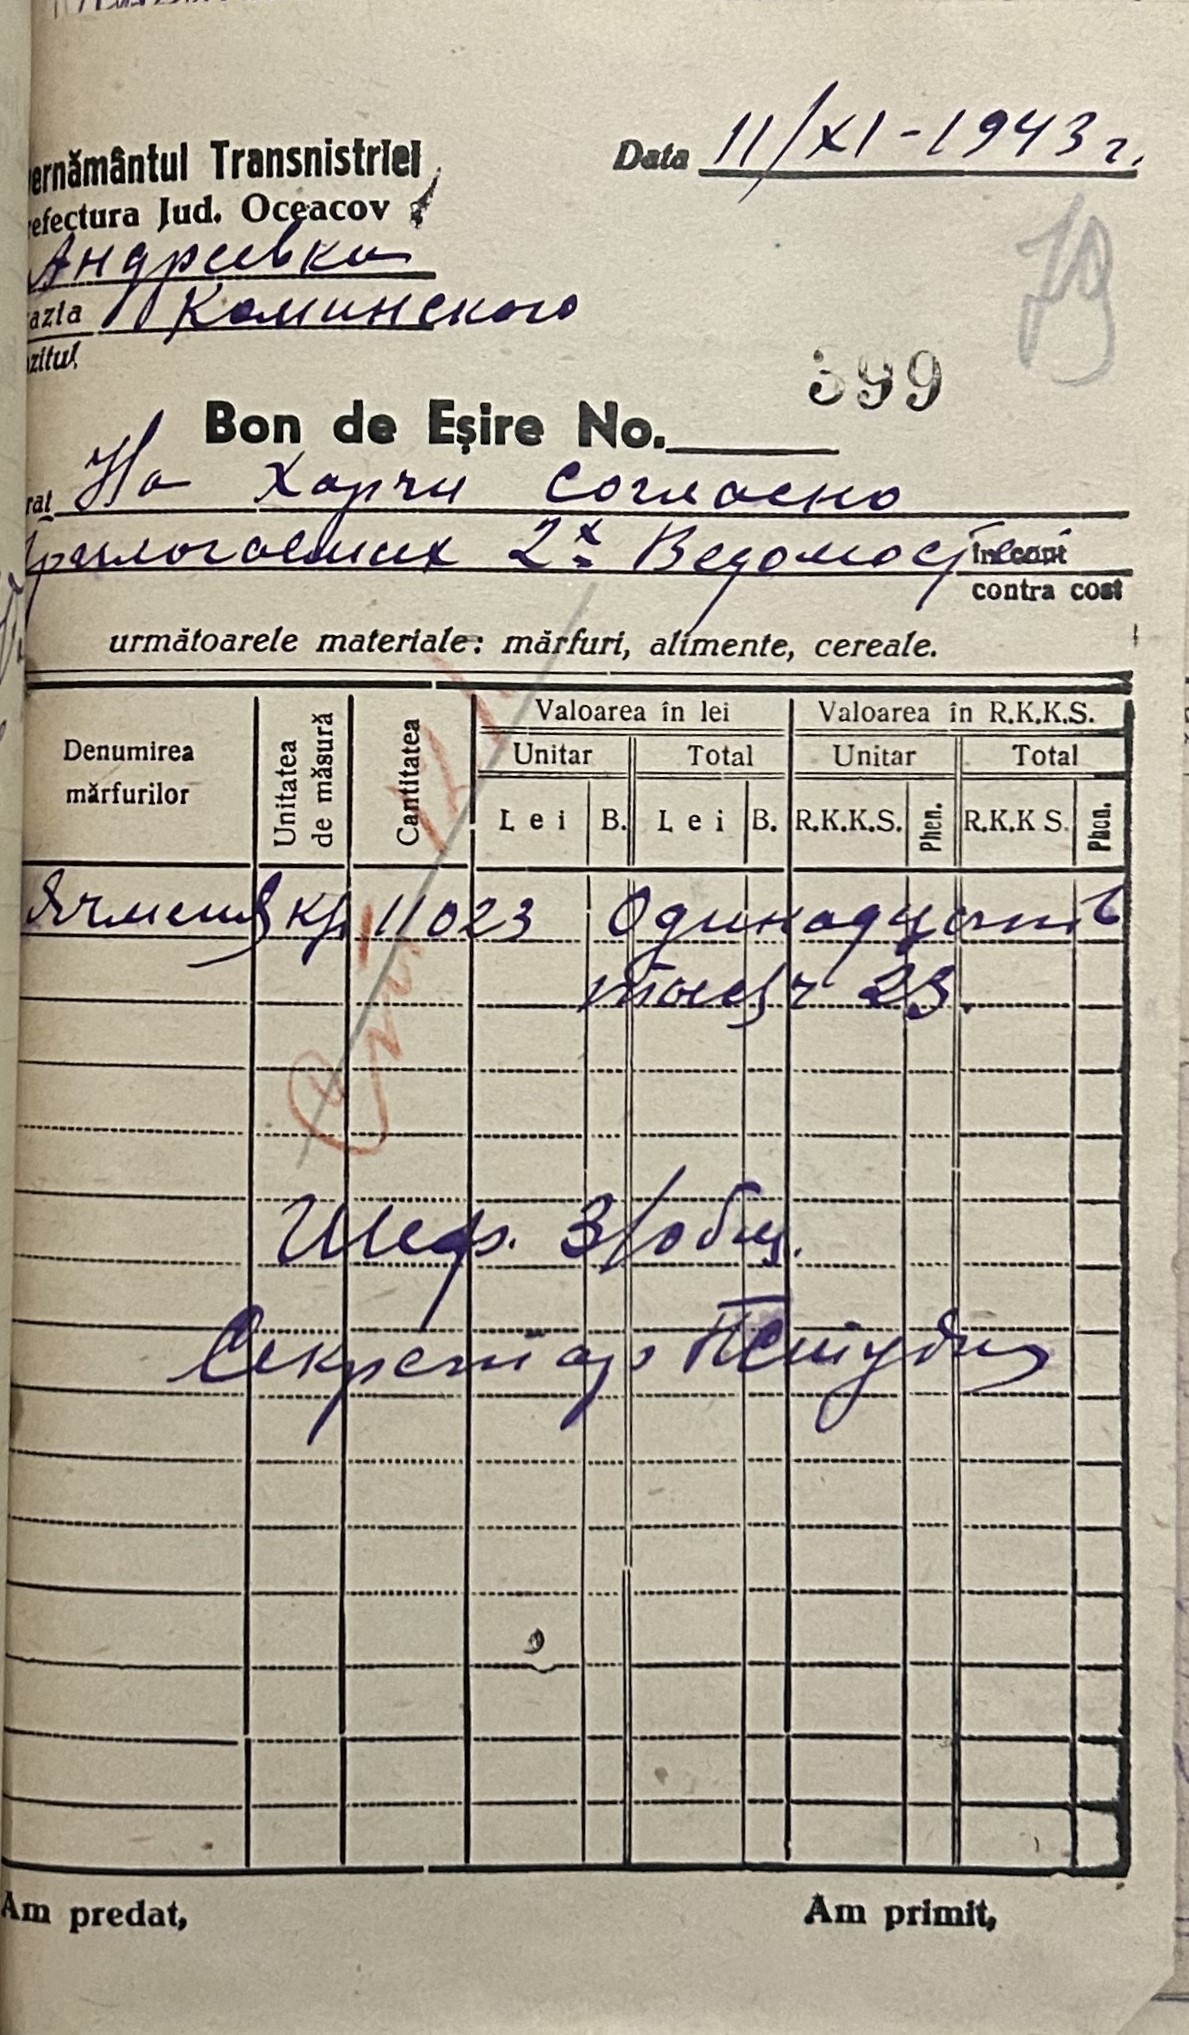 ernământul Transnistriei
Data 11/XI-1943 г.
refectura Jud. Oceacov
Андреевка
79
azia Коминского
zitul
399
Bon de Eșire No.
rat На харчи согласно
прилогаемих 2х Ведомостей
în cont
contra cost
următoarele materiale: mărfuri, alimente, cereale.
Denumirea mărfurilor
Unitatea de măsură
Cantitatea
Valoarea în lei
Valoarea în R.K.K.S.
Unitar
Total
Unitar
Total
Lei B. Lei B. R.K.K.S. Phen. R.K.K S. Phen.
Ячменя кг 11023 Одинадцать
тысяч 23.
Шеф. З/общ.
Секретар
Am predat,
Am primit,